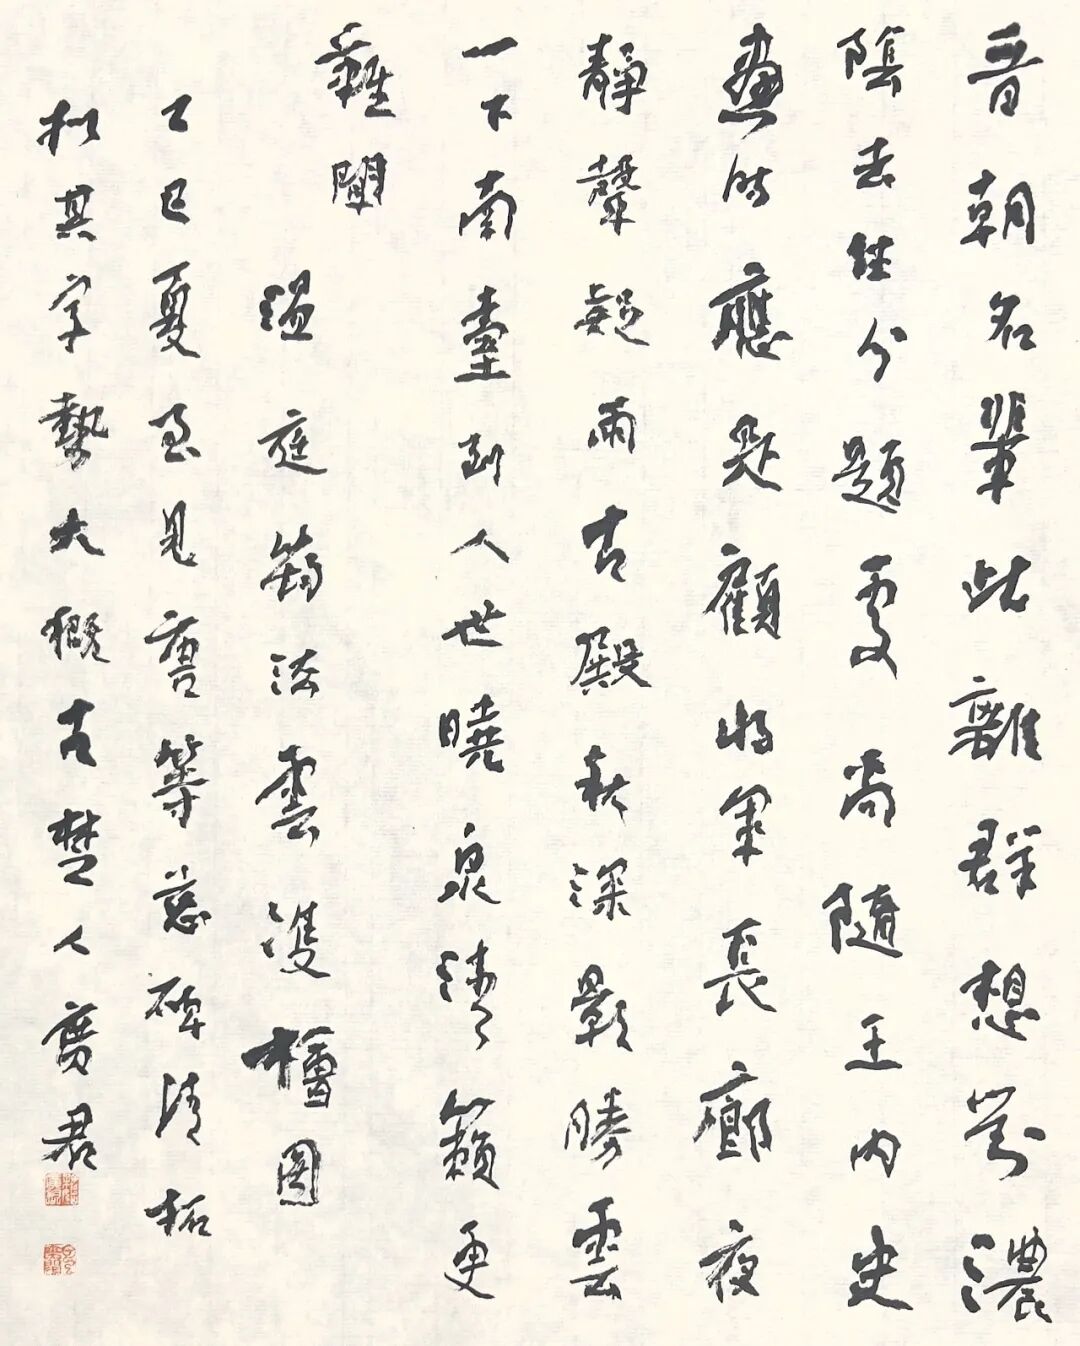 晉朝名輩此離群想對濃
陰去住分題處尚隨王內史
畫時應是顧將軍長廊夜
靜聲疑雨古殿秋深影勝雲
一下南臺到人世曉泉清籟更
難聞
溫庭筠法雲雙檜圖
乙巳夏至見唐等慈碑清拓
拟其字勢大概古楚人君